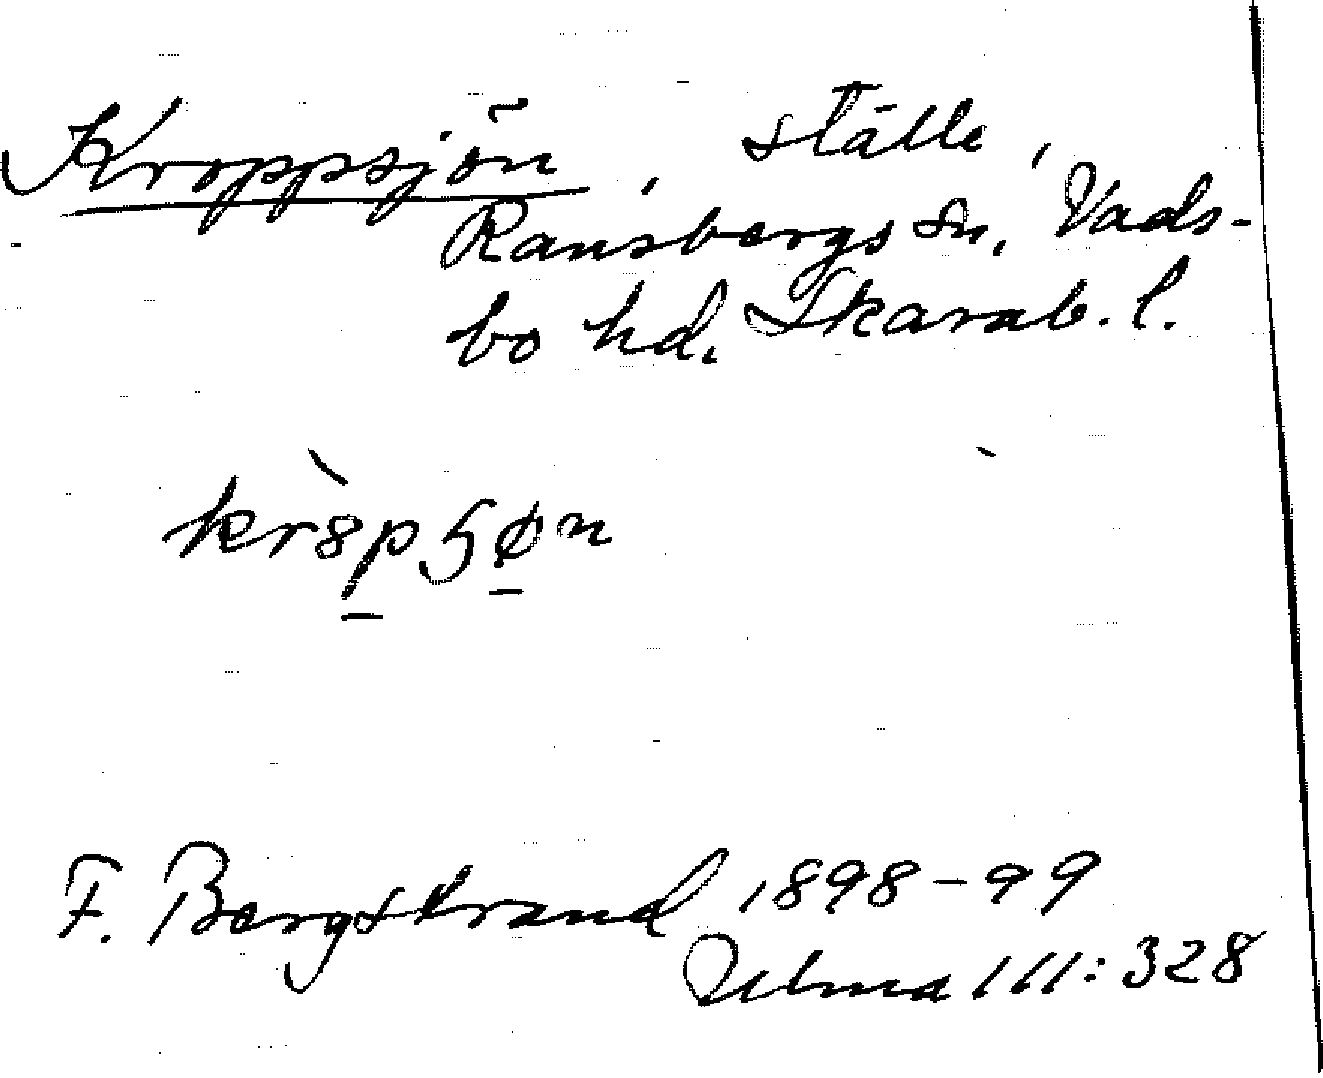 Kroppsjön, ställe,
Ransbergs sn, Vads-
bo hd. Skarab. l.
krȣ̀pɧøn
F. Bergstrand 1898-99
Ulma 111:328